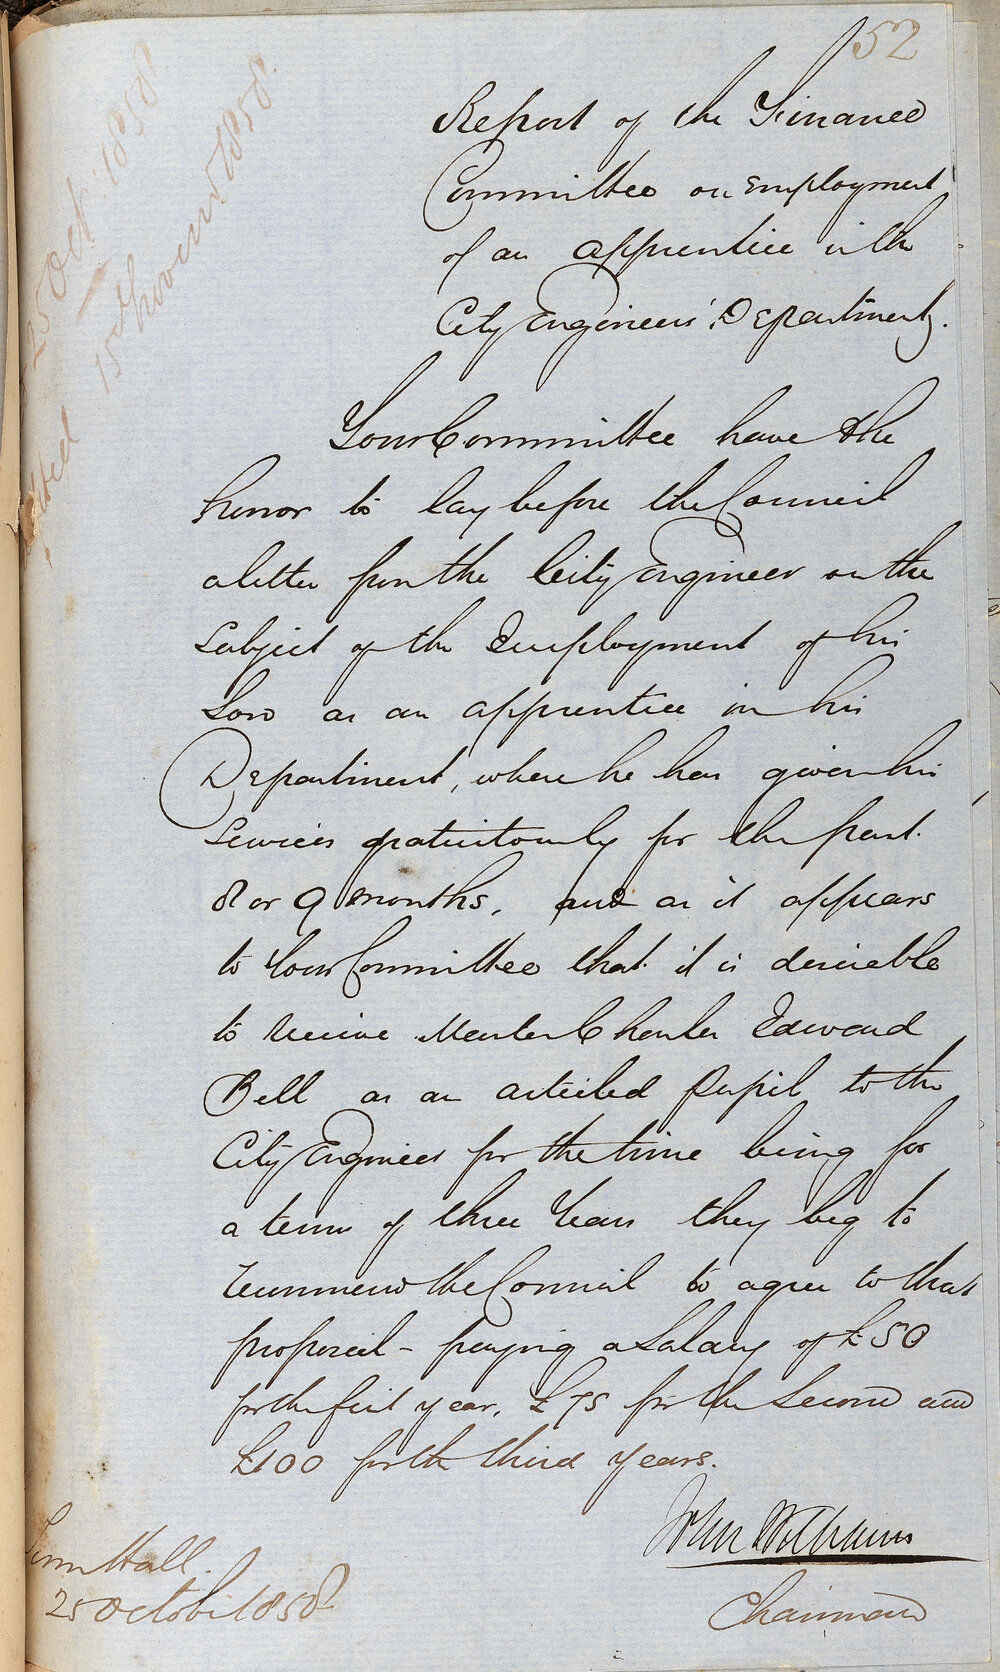 52
25 Oct. 1858
15th Novem 1858
Report of the Finance
Committee on Employment
of an apprentice in the
City Engineers' Department.
Your Committee have the
honor to lay before the Council
a letter from the City Engineer on the
Subject of the Employment of his
Son as an apprentice in his
Department, where he has given his
Services gratuitously for the past
8 or 9 months, and as it appears
to Your Committee that it is desirable
to receive Master Charles Edward
Bell as an articled Pupil to the
City Engineer for the time being for
a term of three Years they beg to
recommend the Council to agree to that
proposal – paying a Salary of £50
for the first year, £75 for the Second and
£100 for the third years.
John Williams
Chairman
Town Hall.
25 October 1858